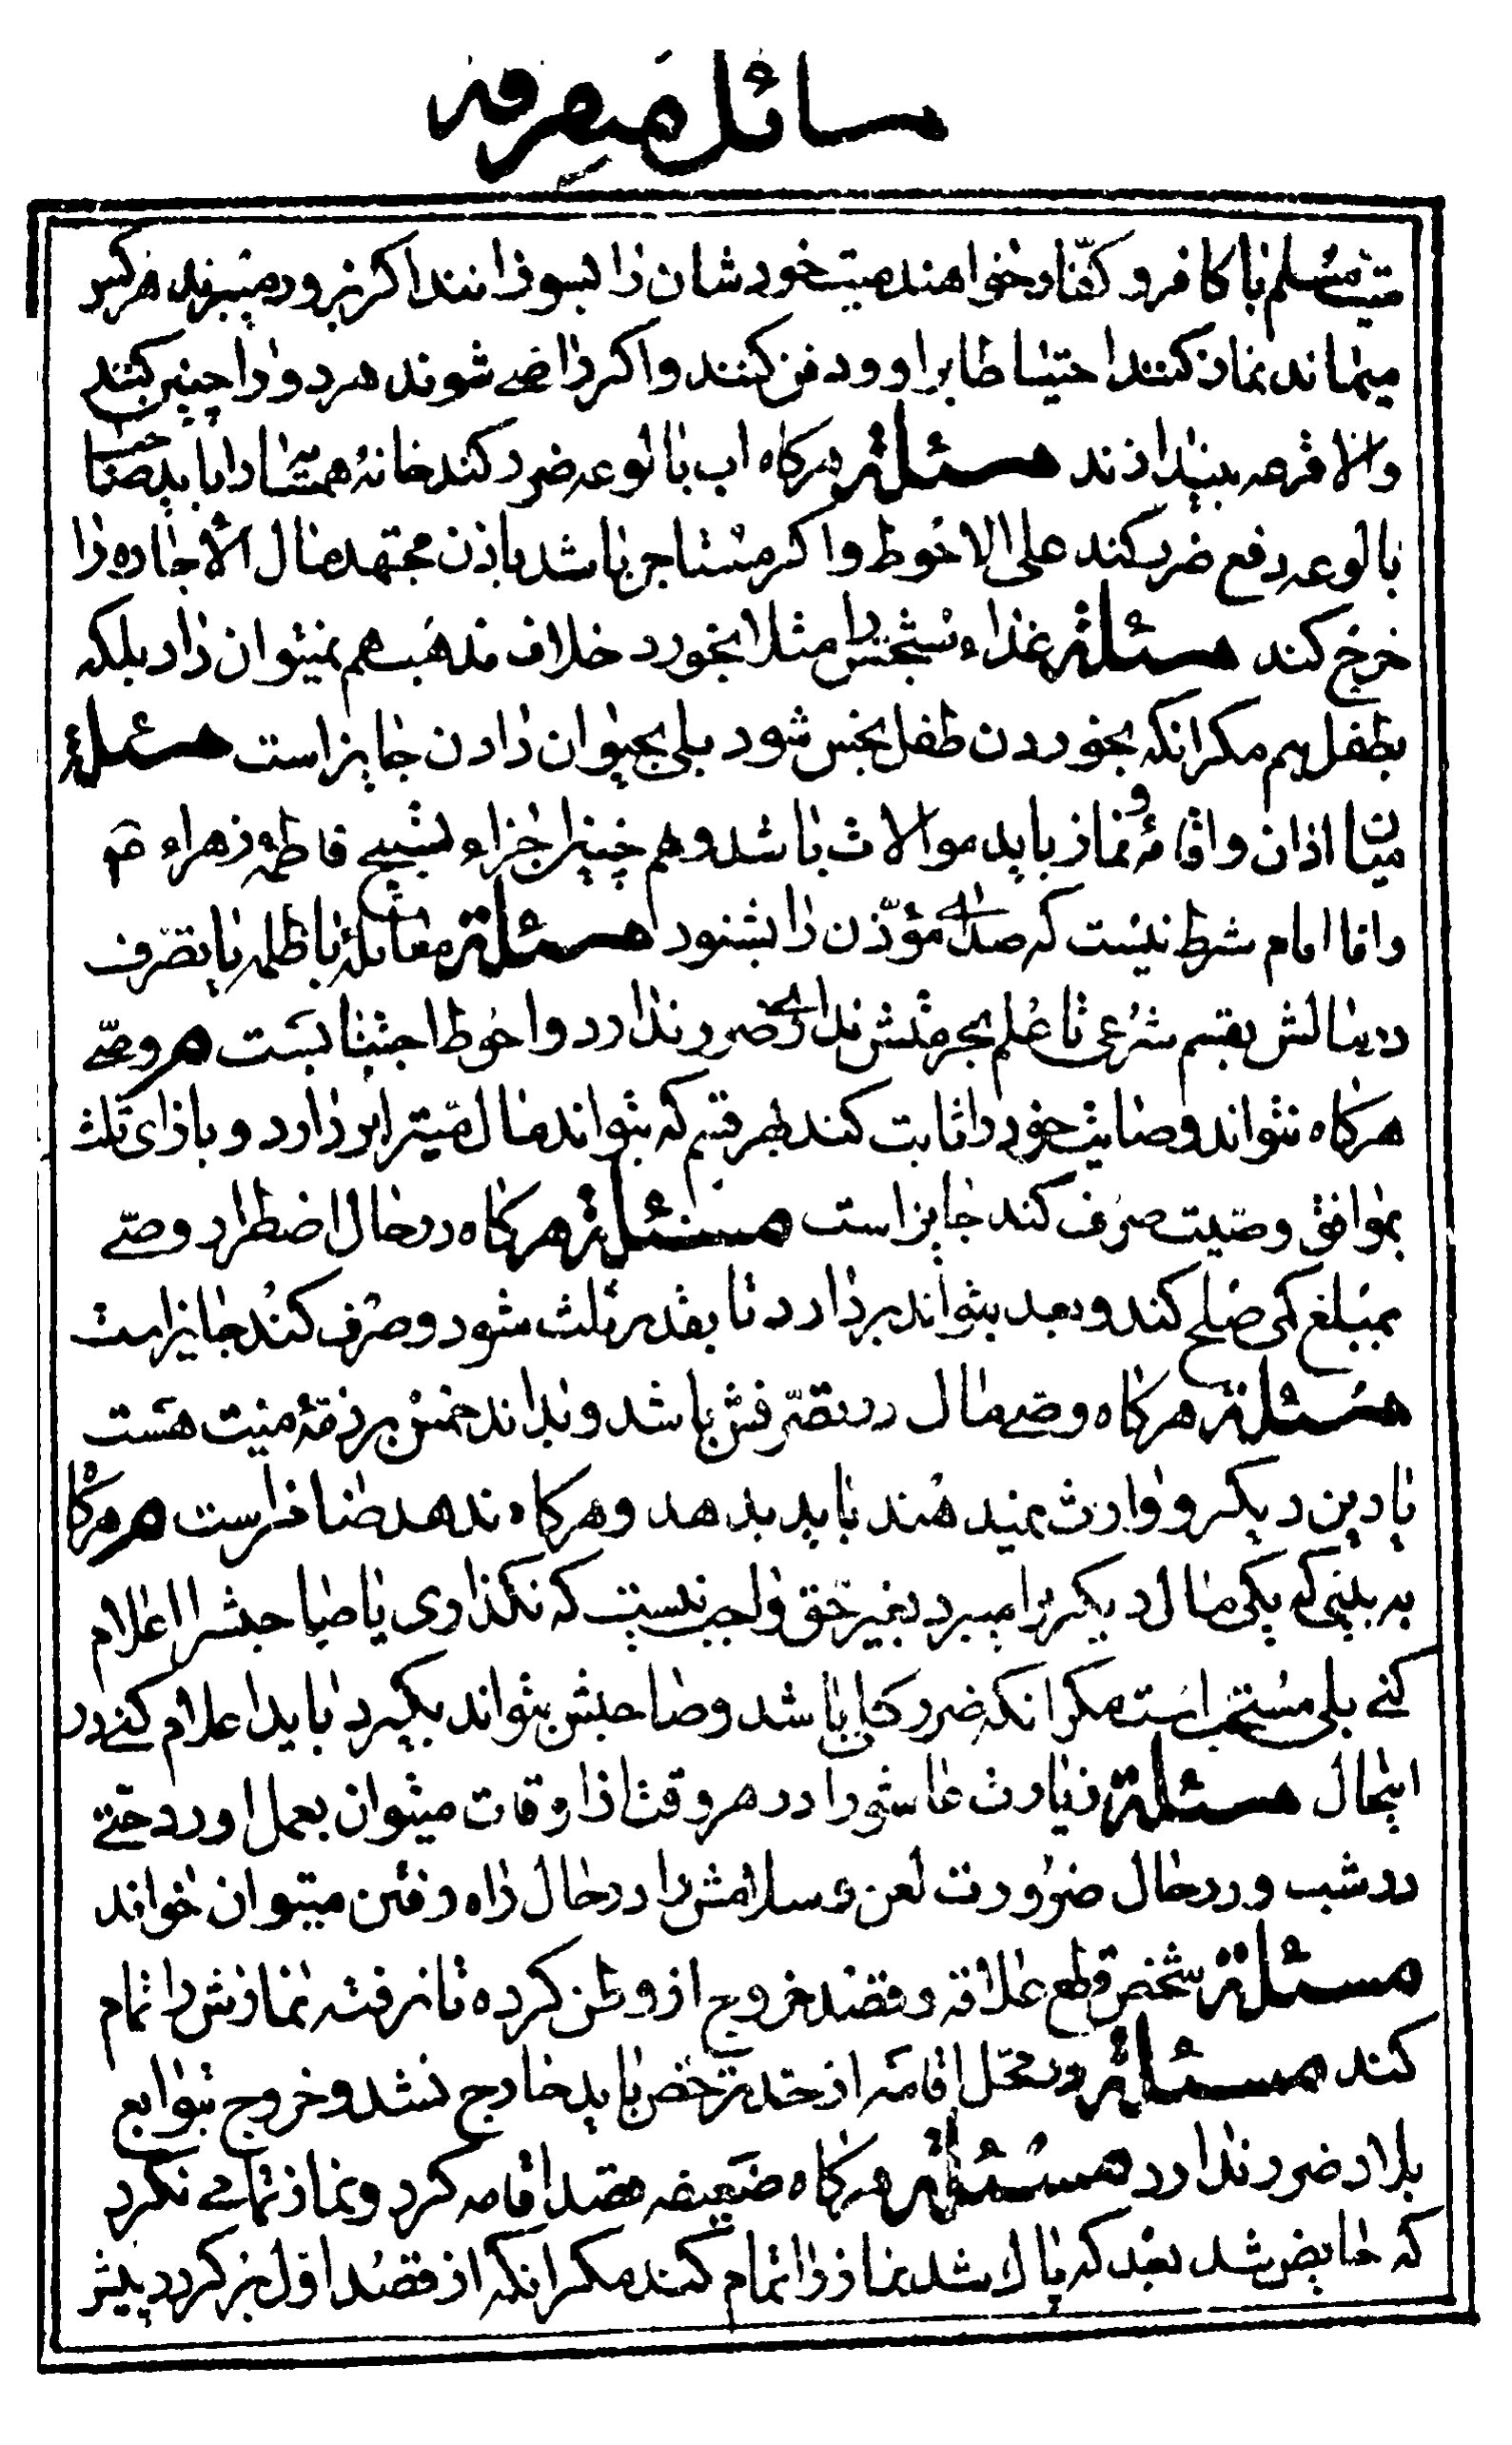 مسائل متفرقه
میت مسلم با کافر و کفّار خواهند میت خودشان را بسوزانند اگر بزور میبرند هر کس
میماند نماز کنند احتیاطا بر او و دفن کنند و اگر راضی شوند هر دو را چنین کنند
والا قرعه بیندازند مسئلة هرگاه اب بالوعه ضرر کند خانهٔ همسایه را باید صاحب
بالوعه دفع ضرر کند علی الاحوط و اگر مستاجر باشد باذن مجتهد مال الاجاره را
خرج کند مسئلة غذاء نجس را مثلا بخورد خلاف مذهب هم نمیتوان داد بلکه
بطفل هم مگر انکه بخوردن طفل نجس شود بلی بحیوان دادن جایز است مسئلة
میان اذان و اقامهٔ و نماز باید موالات باشد و هم چنین اجزاء تسبیح فاطمهٔ زهراء ع
و اما امام شرط نیست که صدای مؤذّن را بشنود مسئلة معاملهٔ با ظلمه یا بتصرّف
در مالش بقسم شرعی تا علم بحرمتش ندارد ضرر ندارد و احوط اجتنابست م وصّی
هرگاه نتواند وصایت خود را ثابت کند بهر قسم که بتواند مال میّت را بردارد و بازای ثلث
بموافق وصّیت صرف کند جایز است مسئلة هرگاه در حال اضطرار وصّی
بمبلغ کمی صلح کند و بعد بتواند بردارد تا بقدر ثلث شود و صرف کند جایز است
مسئلة هرگاه وصی مال در تصرّفش باشد و بداند خمس بر ذمّهٔ میت هست
یا دین دیگر و وارث نمیدهند باید بدهد و هرگاه ندهد ضامن است م هرگاه
به بینی که یکی مال دیگر را میبرد بغیر حق واجب نیست که نگذاری یا صاحبش را اعلام
کنی بلی مستحب است مگر انکه ضرر کلی باشد و صاحبش بتواند بگیرد باید اعلام کنی در
اینحال مسئلة زیارت عاشورا در هر وقت از اوقات میتوان بعمل اورد حتی
در شب و در حال ضرورت لعن و سلامش را در حال راه رفتن میتوان خواند
مسئلة شخص قطع علاقه و قصد خروج از وطن کرده تا نرفته نمازش را تمام
کند مسئلة در محل اقامه از حد ترخص باید خارج نشد و خروج بتوابع
بلاد ضرر ندارد مسئلة هرگاه ضعیفه قصد اقامه کرد و نماز تمامی نکرد
که حایض شد بعد که پاک شد نماز را تمام کند مگر انکه از قصد اول برگردد پیش